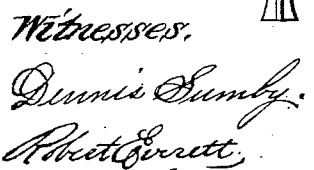 Witnesses.
Dennis Sumby.
Robert Everett,